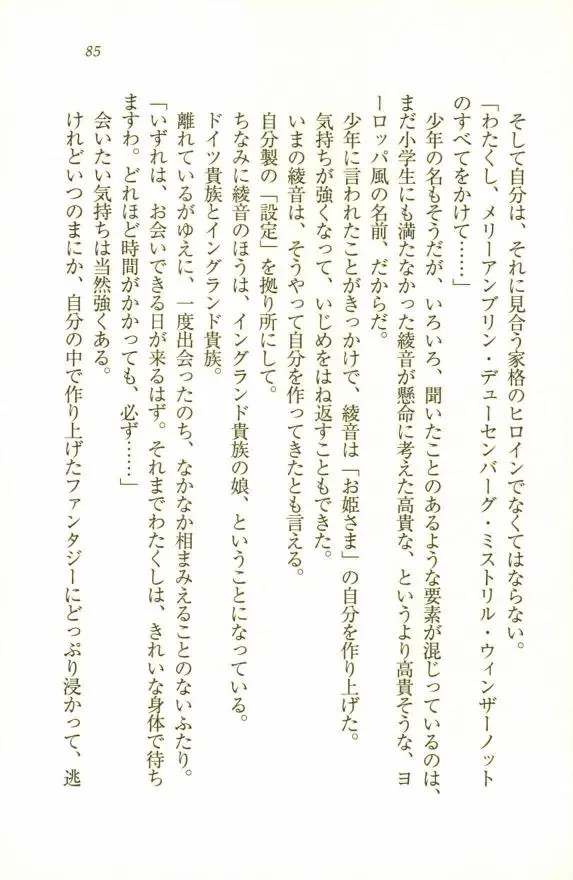 85
そして自分は、それに見合う家格のヒロインでなくてはならない。
「わたくし、メリーアンブリン・デューセンバーグ・ミストリル・ウィンザーノット
のすべてをかけて……」
少年の名もそうだが、いろいろ、聞いたことのあるような要素が混じっているのは、
まだ小学生にも満たなかった綾音が懸命に考えた高貴な、というより高貴そうな、ヨ
ーロッパ風の名前、だからだ。
少年に言われたことがきっかけで、綾音は「お姫さま」の自分を作り上げた。
気持ちが強くなって、いじめをはね返すこともできた。
いまの綾音は、そうやって自分を作ってきたとも言える。
自分製の「設定」を拠り所にして。
ちなみに綾音のほうは、イングランド貴族の娘、ということになっている。
ドイツ貴族とイングランド貴族。
離れているがゆえに、一度出会ったのち、なかなか相まみえることのないふたり。
「いずれは、お会いできる日が来るはず。それまでわたくしは、きれいな身体で待ち
ますわ。どれほど時間がかかっても、必ず……」
会いたい気持ちは当然強くある。
けれどいつのまにか、自分の中で作り上げたファンタジーにどっぷり浸かって、逃